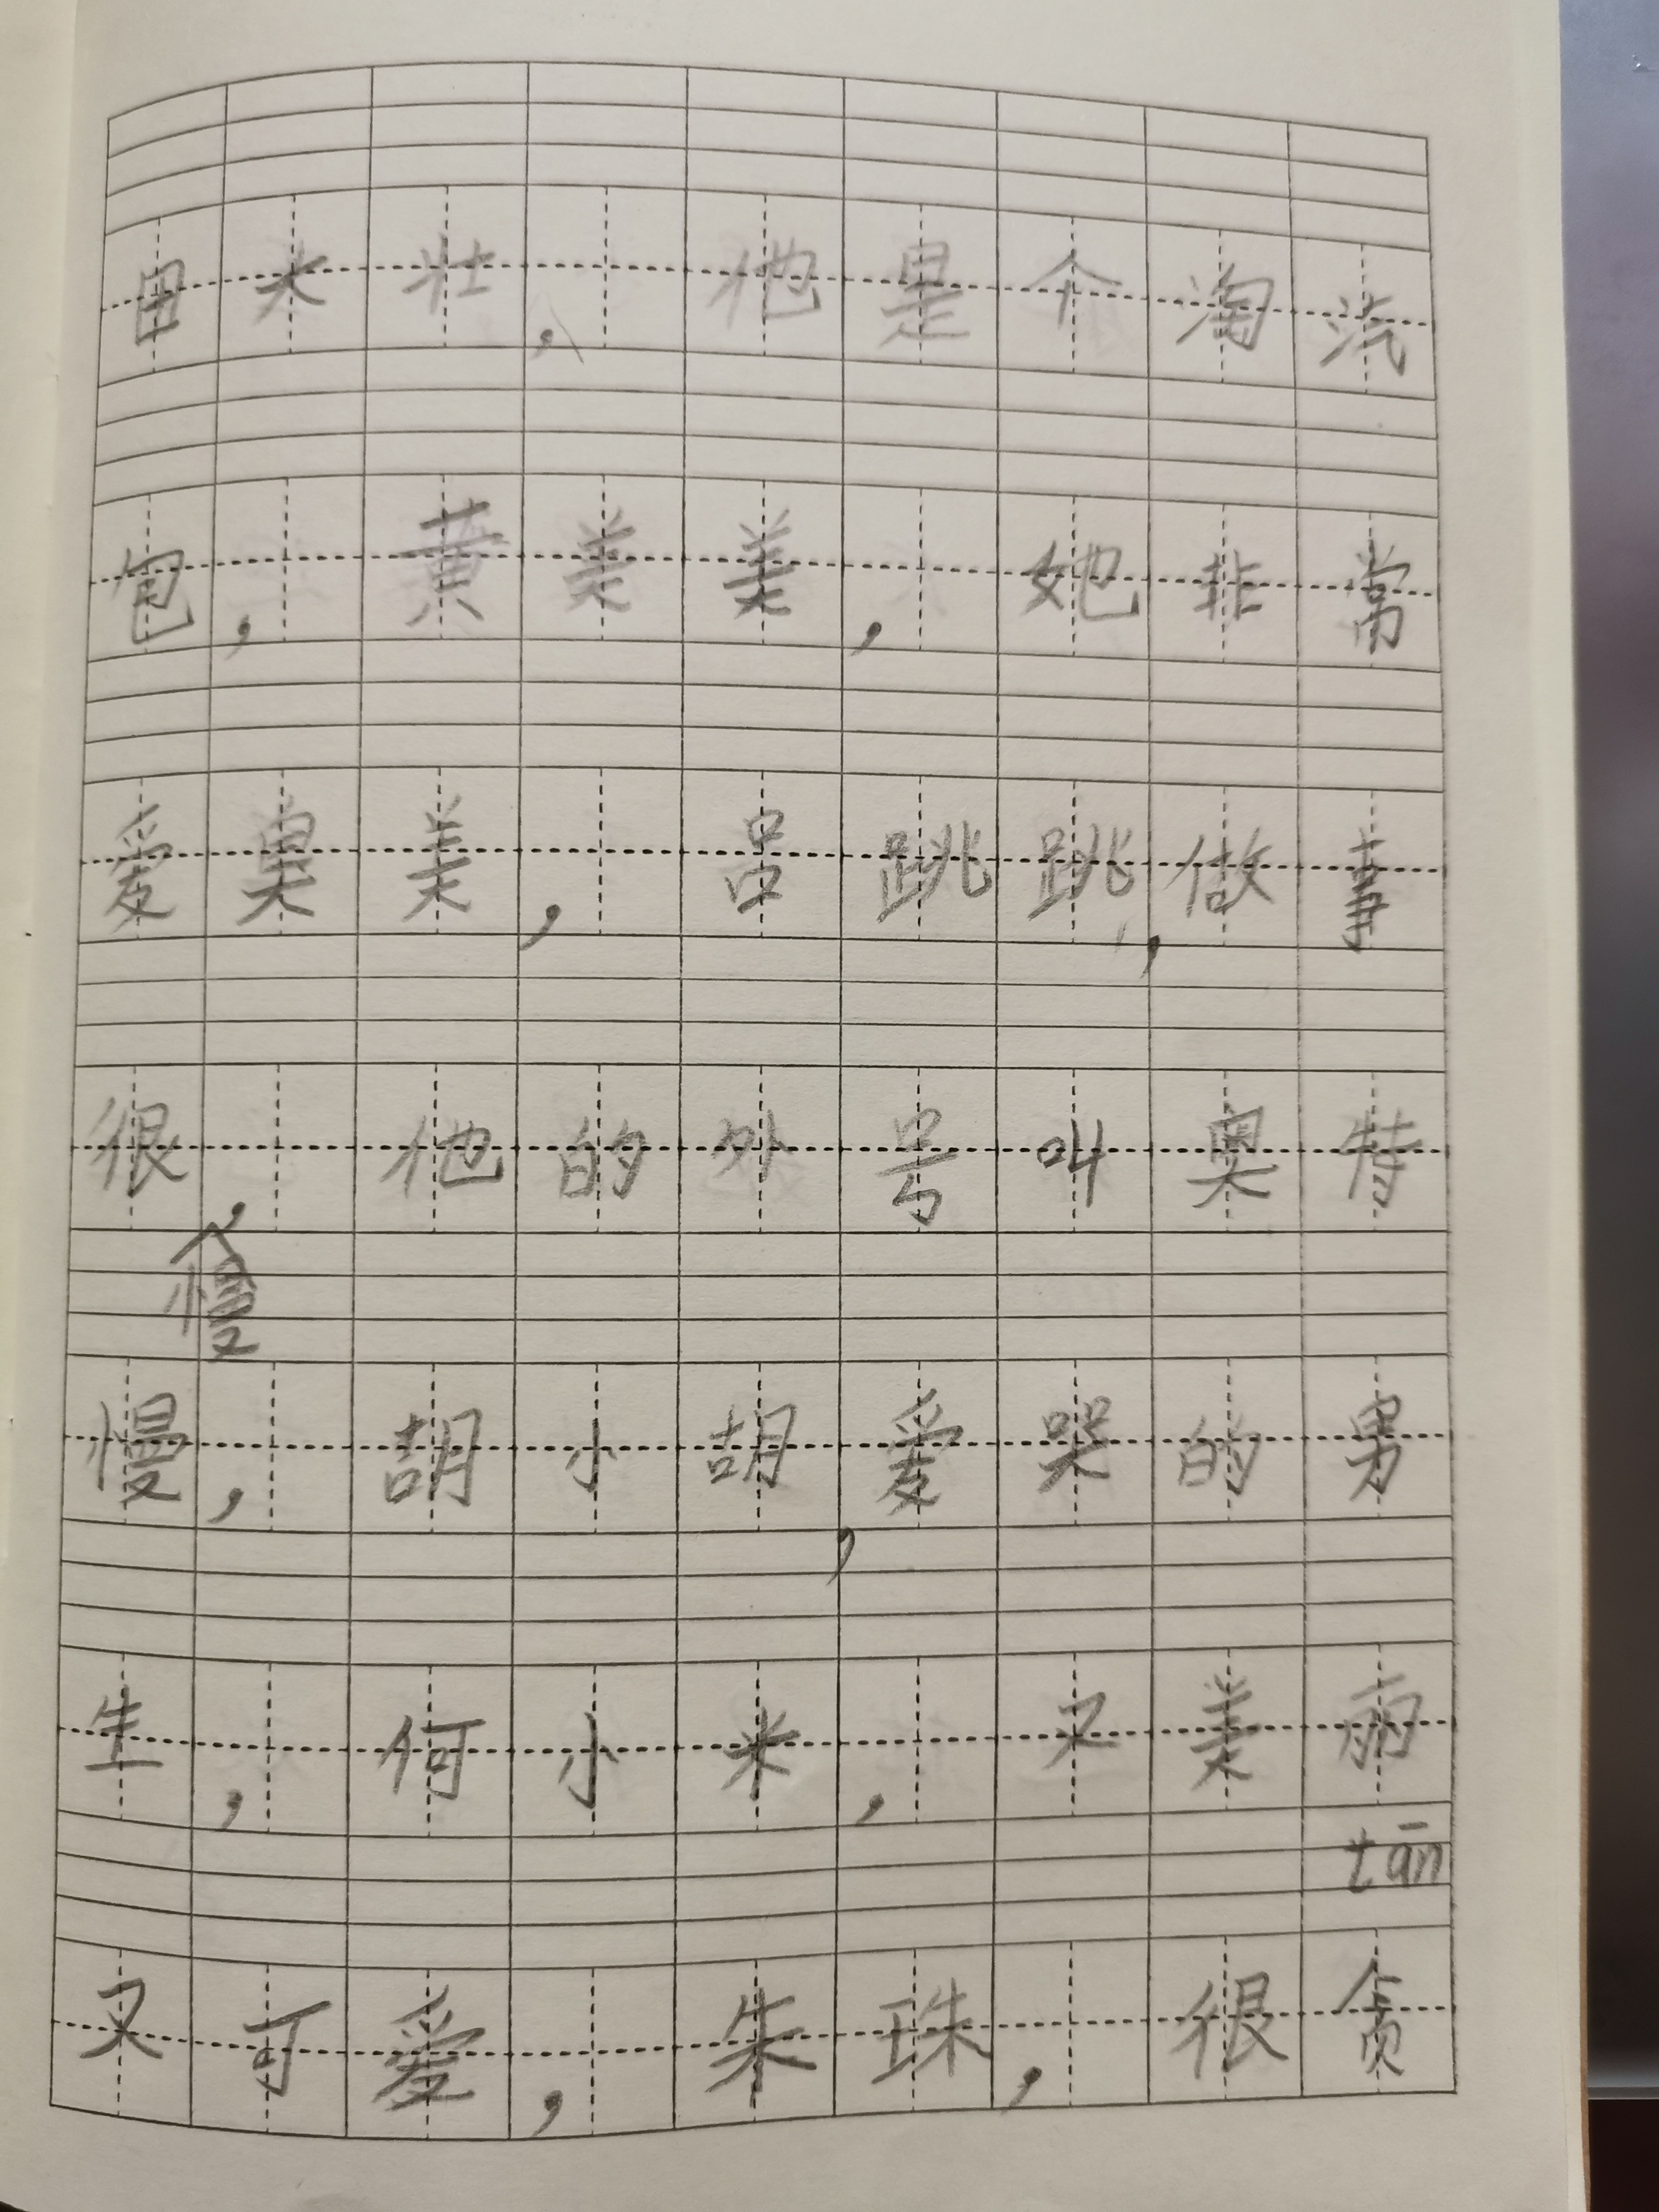 田大壮，他是个淘汽
包，黄美美，她非常
爱臭美，吕跳跳，做事
很慢，他的外号叫奥特
慢，胡小胡，爱哭的男
生，何小米，又美丽
tān
又可爱，朱珠，很贪